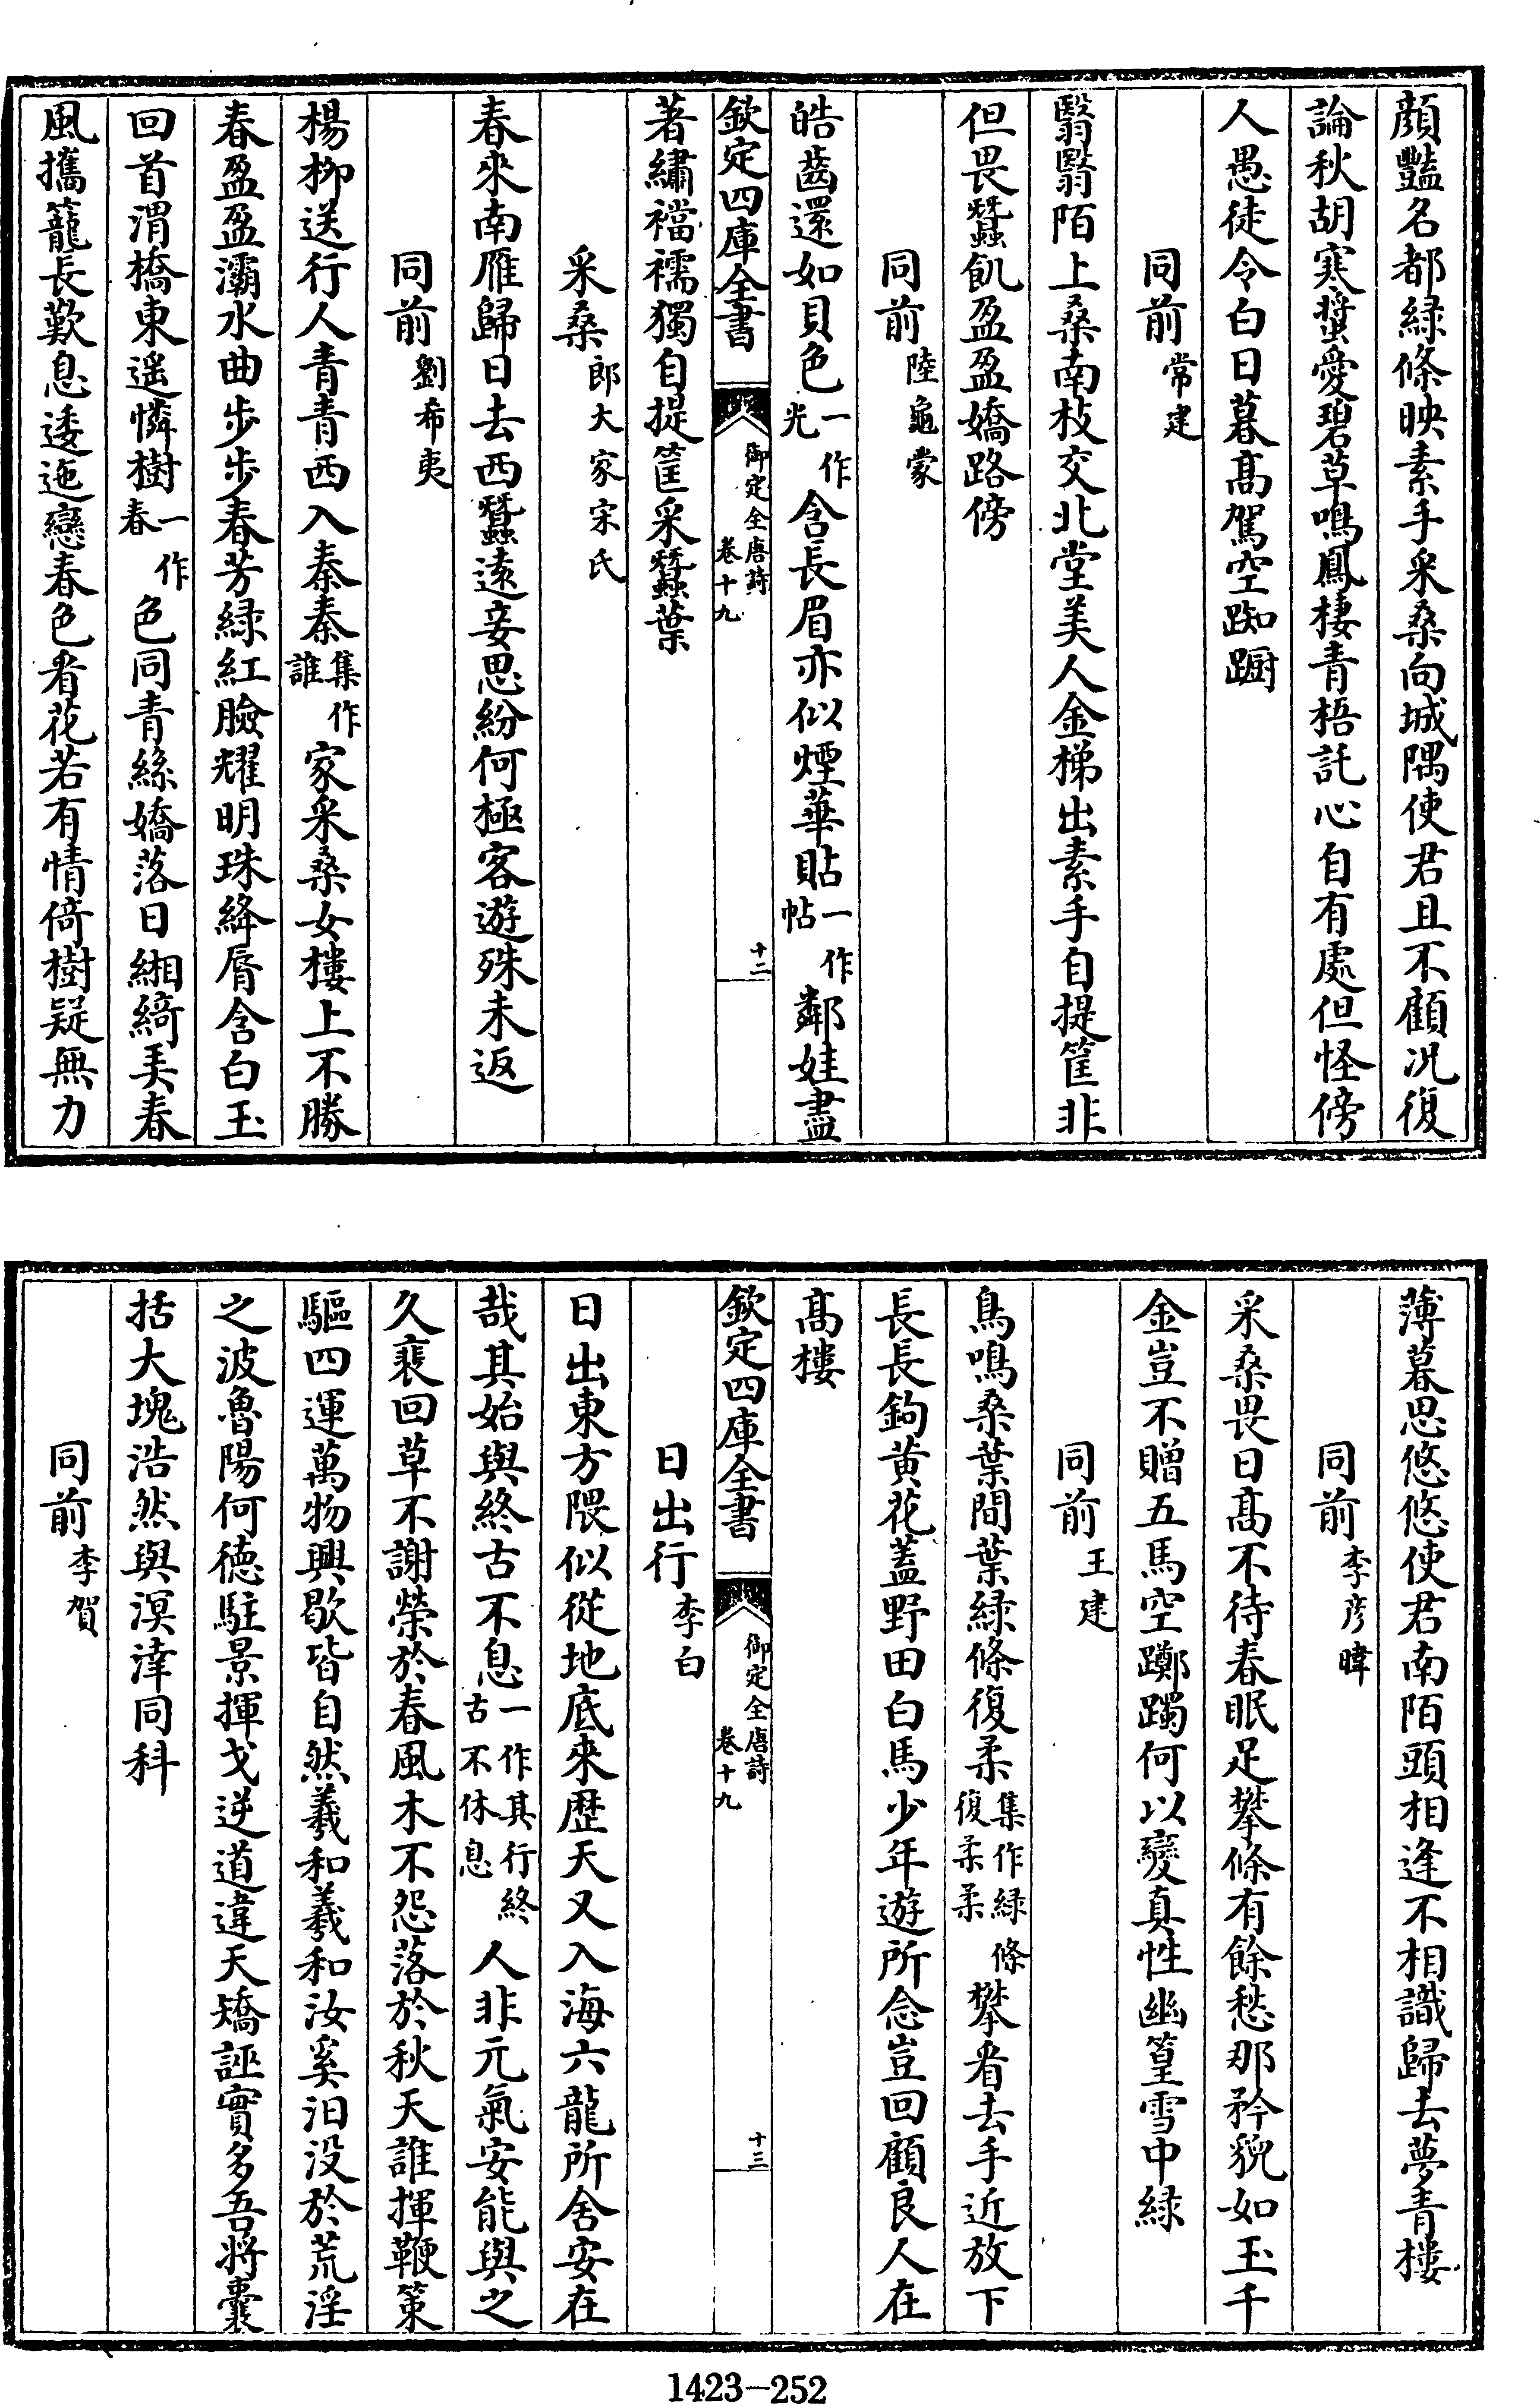 顔豔名都緑條映素手采桑向城隅使君且不顧况復
論秋胡寒螿愛碧草鳴鳳棲青梧託心自有處但怪傍
人愚徒令白日暮髙駕空踟蹰
同前常建
翳翳陌上桑南枝交北堂美人金梯出素手自提筐非
但畏蠶飢盈盈嬌路傍
同前陸龜蒙
皓齒還如貝色一作光含長眉亦似煙華貼一作帖鄰娃盡
欽定四庫全書 御定全唐詩卷十九 十二
著繡襠襦獨自提筐采蠶葉
采桑郎大家宋氏
春來南雁歸日去西蠶遠妾思紛何極客遊殊未返
同前劉希夷
楊柳送行人青青西入秦秦集作誰家采桑女樓上不勝
春盈盈灞水曲步步春芳緑紅臉耀明珠絳脣含白玉
回首渭橋東遥憐樹一作春色同青絲嬌落日緗綺美春
風攜籠長歎息逶迤戀春色看花若有情倚樹疑無力
薄暮思悠悠使君南陌頭相逢不相識歸去夢青樓
同前李彦暐
采桑畏日髙不待春眠足攀條有餘愁那矜貌如玉千
金豈不贈五馬空躑躅何以變真性幽篁雪中緑
同前王建
鳥鳴桑葉間葉緑條復柔集作緑條復柔柔攀看去手近放下
長長鉤黄花蓋野田白馬少年遊所念豈回顧良人在
髙樓
欽定四庫全書 御定全唐詩卷十九 十三
日出行李白
日出東方隈似從地底來歴天又入海六龍所舍安在
哉其始與終古不息一作其行終古不休息人非元氣安能與之
久裵回草不謝榮於春風木不怨落於秋天誰揮鞭策
驅四運萬物興歇皆自然羲和羲和汝奚汩没於荒淫
之波魯陽何徳駐景揮戈逆道違天矯誣實多吾將囊
括大塊浩然與溟涬同科
同前李賀
1423-252